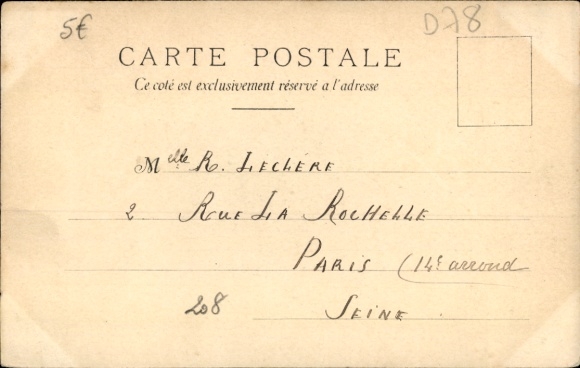 5€
D78
CARTE POSTALE
Ce coté est exclusivement réservé a l'adresse
Melle R. LECLÈRE
2 RUE LA ROCHELLE
PARIS (14e arrond
208 SEINE